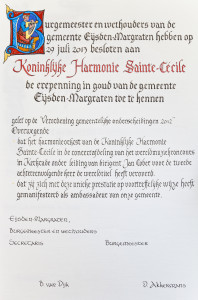 Burgemeester en wethouders van de
gemeente Eijsden-Margraten hebben op
29 juli 2013 besloten aan
Koninklijke Harmonie Sainte-Cécile
de erepenning in goud van de gemeente
Eijsden-Margraten toe te kennen
gelet op de Verordening gemeentelijke onderscheidingen 2012
Overwegende
dat het harmonieorkest van de Koninklijke Harmonie
Sainte-Cécile in de concertafdeling van het wereldmuziekconcours
in Kerkrade onder leiding van dirigent Jan Cober voor de tweede
achtereenvolgende keer de wereldtitel heeft veroverd.
dat zij zich met deze unieke prestatie op voortreffelijke wijze heeft
gemanifesteerd als ambassadeur van onze gemeente.
Eijsden-Margraten,
Burgemeester en wethouders
Secretaris Burgemeester
B. van Dijk D. Akkermans